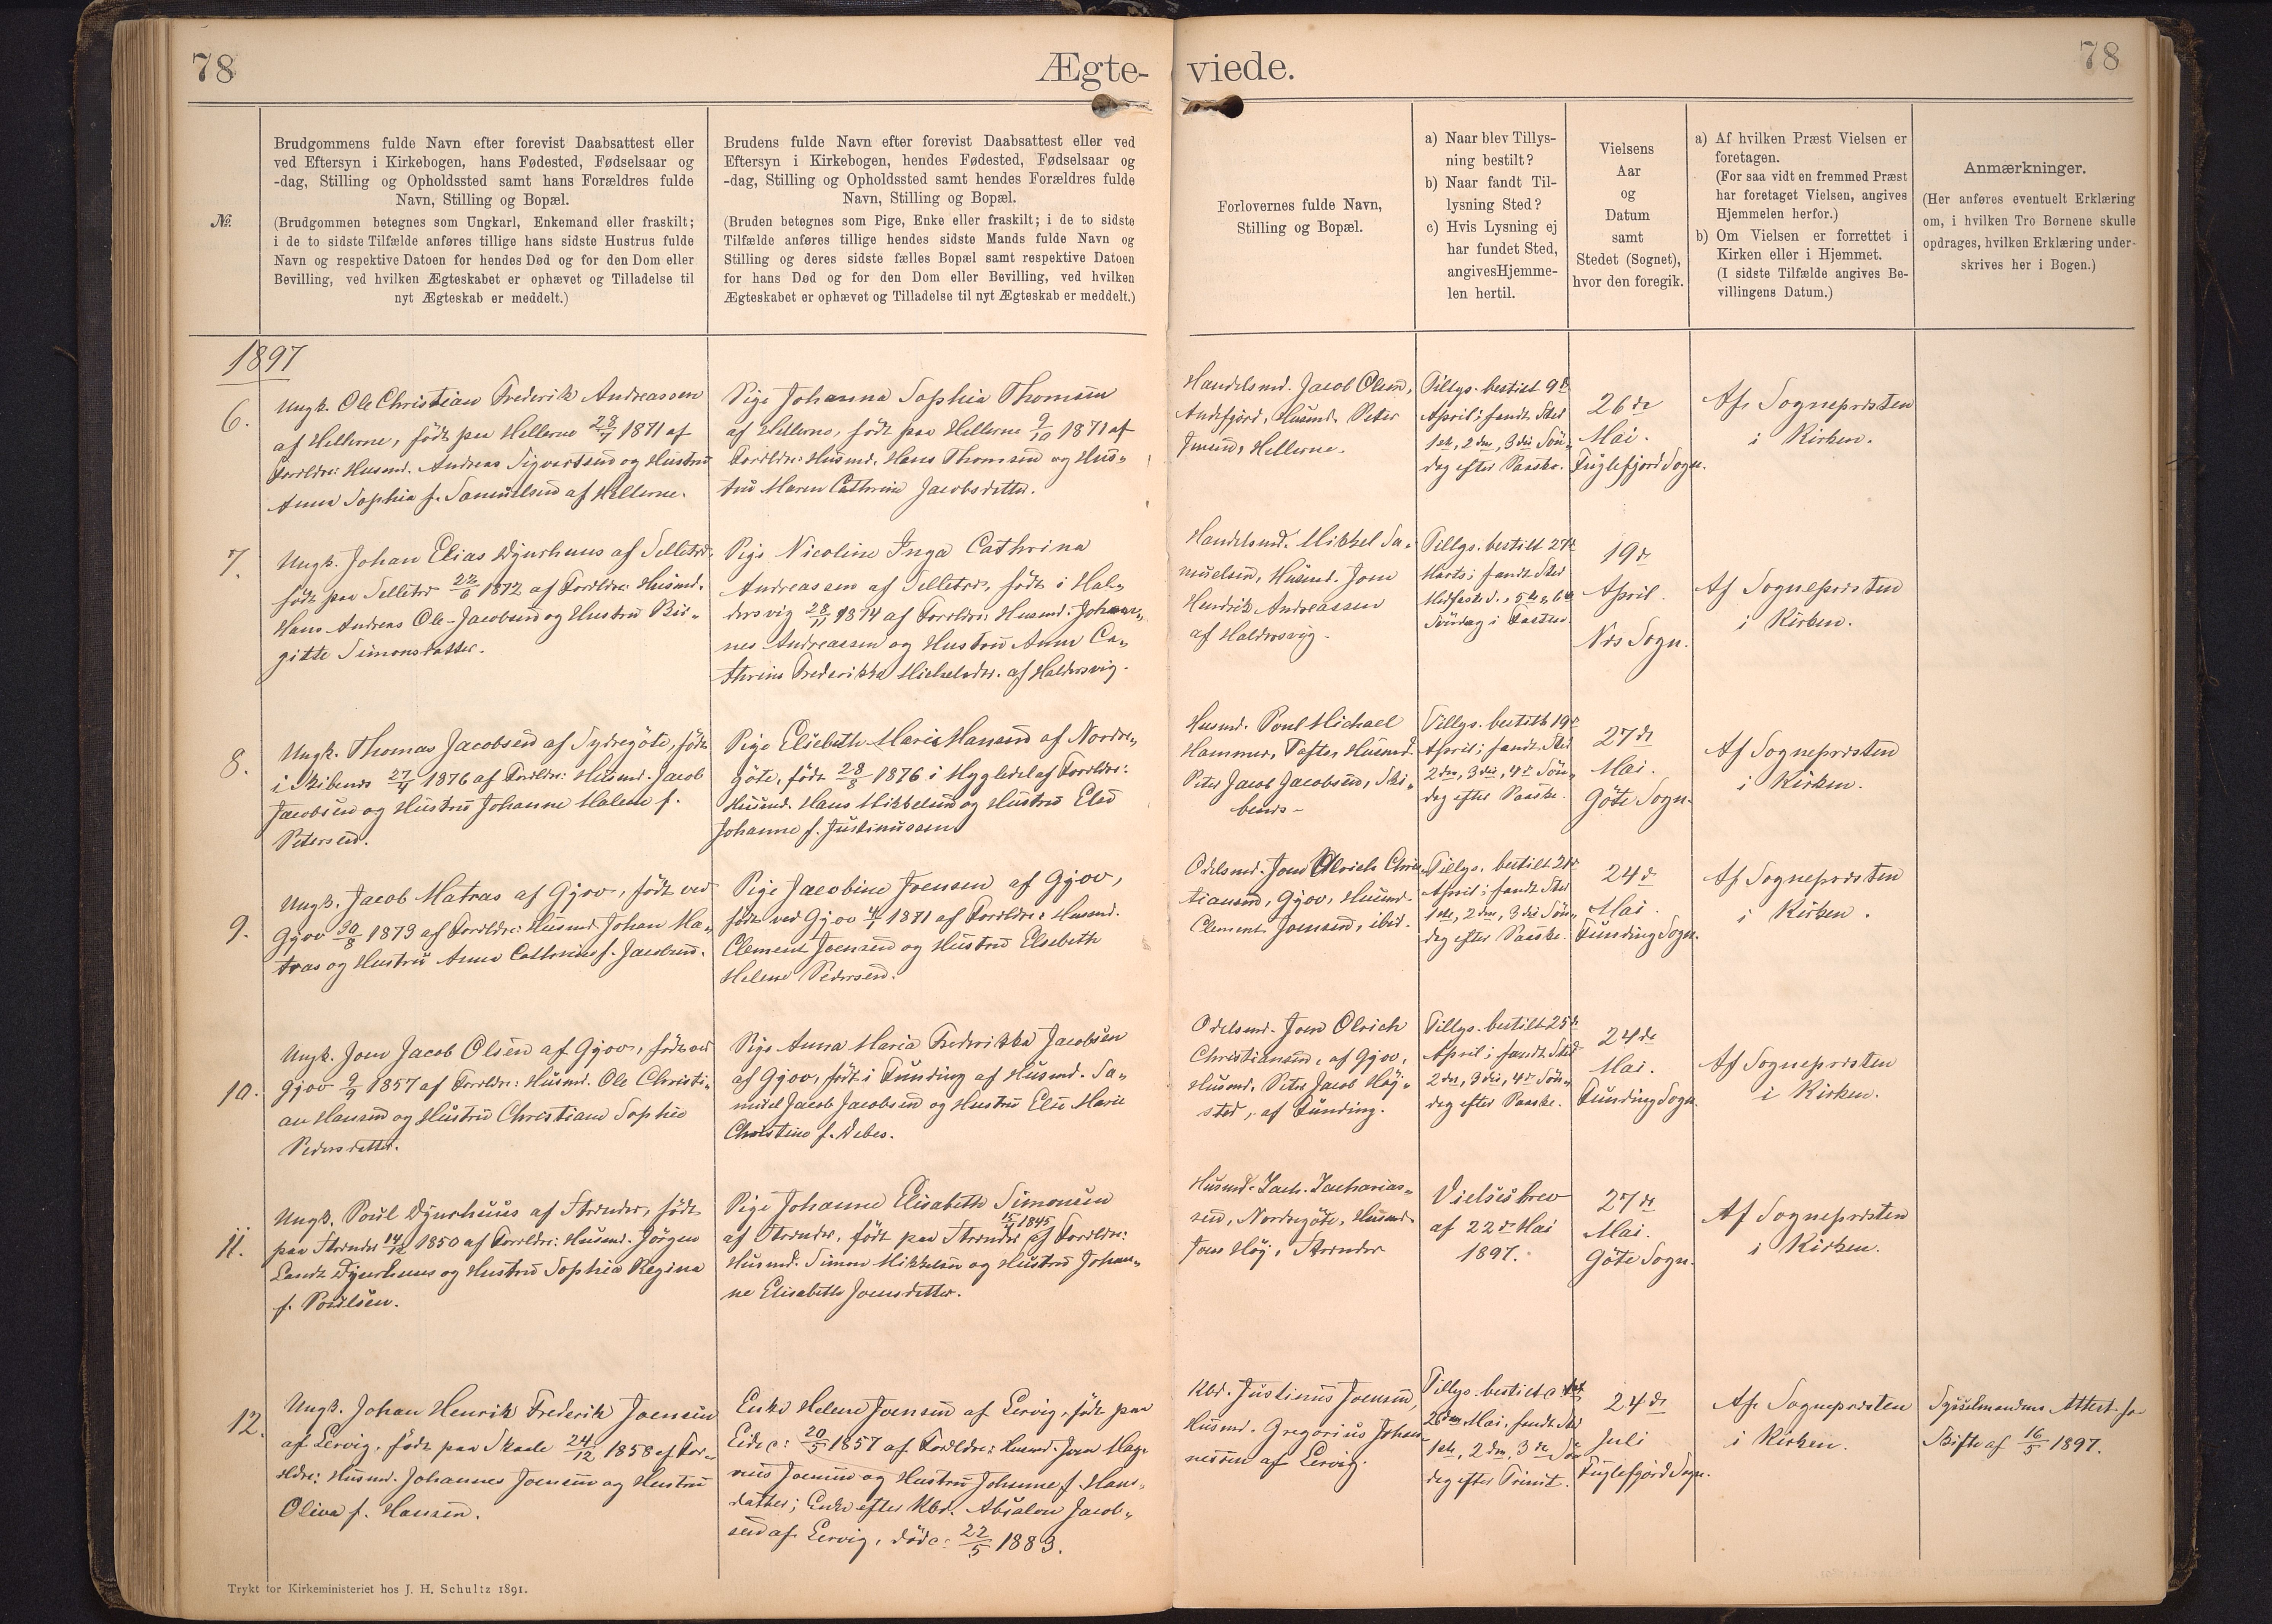 78
Ægte-
viede.
78
№.
Brudgommens fulde Navn efter forevist Daabsattest eller
ved Eftersyn i Kirkebogen, hans Fødested, Fødselsaar og
-dag, Stilling og Opholdssted samt hans Forældres fulde
Navn, Stilling og Bopæl.
(Brudgommen betegnes som Ungkarl, Enkemand eller fraskilt;
i de to sidste Tilfælde anføres tillige hans sidste Hustrus fulde
Navn og respektive Datoen for hendes Død og for den Dom eller
Bevilling, ved hvilken Ægteskabet er ophævet og Tilladelse til
nyt Ægteskab er meddelt.)
Brudens fulde Navn efter forevist Daabsattest eller ved
Eftersyn i Kirkebogen, hendes Fødested, Fødselsaar og
-dag, Stilling og Opholdssted samt hendes Forældres fulde
Navn, Stilling og Bopæl.
(Bruden betegnes som Pige, Enke eller fraskilt; i de to sidste
Tilfælde anføres tillige hendes sidste Mands fulde Navn og
Stilling og deres sidste fælles Bopæl samt respektive Datoen
for hans Død og for den Dom eller Bevilling, ved hvilken
Ægteskabet er ophævet og Tilladelse til nyt Ægteskab er meddelt.)
Forlovernes fulde Navn,
Stilling og Bopæl.
a) Naar blev Tillys-
ning bestilt?
b) Naar fandt Til-
lysning Sted?
c) Hvis Lysning ej
har fundet Sted,
angives Hjemme-
len hertil.
Vielsens
Aar
og
Datum
samt
Stedet (Sognet),
hvor den foregik.
a) Af hvilken Præst Vielsen er
foretagen.
(For saa vidt en fremmed Præst
har foretaget Vielsen, angives
Hjemmelen herfor.)
b) Om Vielsen er forrettet i
Kirken eller i Hjemmet.
(I sidste Tilfælde angives Be-
villingens Datum.)
Anmærkninger.
(Her anføres eventuelt Erklæring
om, i hvilken Tro Børnene skulle
opdrages, hvilken Erklæring under-
skrives her i Bogen.)
1897
6.
Ungk. Ole Christian Frederik Andreassen
af Hellerne, født paa Hellerne 28/7 1871 af
Forldre: Husmd. Andreas Sigvartsen og Hustru
Anna Sophia f. Samuelsen af Hellerne.
Pige Johanna Sophia Thomsen
af Hellerne, født paa Hellerne 9/10 1871 af
Forldre: Husmd. Hans Thomsen og Hus-
tru Maren Cathrine Jacobsdatter.
Handelsmd. Jacob Olsen,
Andefjord, Husmd. Peter
Hellerne.
Tillys. bestilt 9de
April; fandt Sted
1ste, 2den, 3die Søn-
dag efter Paaske.
26de
Mai.
Fuglefjord Sogn.
Af Sognepræsten
i Kirken.
7.
Ungk. Johan Elias Djurhuus af Selletræ,
født paa Selletræ 22/6 1872 af Forldre: Husmd.
Hans Andreas Ole-Jacobsen og Hustru Bir-
gitte Simonsdatter.
Pige Nicoline Inga Cathrina
Andreassen af Selletræ, født i Hal-
dersvig 28/11 1874 af Forldre: Husmd. Johan-
nes Andreassen og Hustru Anna Ca-
thrine Frederikka Michelsdtr. af Haldersvig.
Handelsmd. Mikkel Sa-
muelsen, Husmd. Joen
Hendrik Andreassen
af Haldersvig.
Tillys. bestilt 27de
Marts; fandt Sted
Midfaste d., 5te & 6te
Søndag i Fasten.
19de
April.
Næs Sogn.
Af Sognepræsten
i Kirken.
8.
Ungk. Thomas Jacobsen af Sydregöte, født
i Skibenæs 27/4 1876 af Forldre: Husmd. Jacob
Jacobsen og Hustru Johanne Malene f.
Petersen.
Pige Elsebeth Marie Hansen af Nordre-
göte, født 28/8 1876 i Hyggedel af Forldre:
Husmd. Hans Mikkelsen og Hustru Else
Johanne f. Justinussen
Husmd. Poul Michael
Hammer, Tofter, Husmd.
Peter Jacob Jacobsen, Ski-
benæs-
Tillys. bestilt 19de
April; fandt Sted
2den, 3die, 4de Søn-
dag efter Paaske.
27de
Mai.
Göte Sogn.
Af Sognepræsten
i Kirken.
9.
Ungk. Jacob Matras af Gjov, født ved
Gjov 30/8 1873 af Forldre: Husmd. Johan Ma-
tras og Hustru Anna Cathrine f. Jacobsen.
Pige Jacobine Joensen af Gjov,
født ved Gjov 4/7 1871 af Forldre: Husmd.
Clement Joensen og Hustru Elsebeth
Helene Pedersen.
Odelsmd. Joen Olrich Chris-
tiansen, Gjov, Husmd.
Clement Joensen, ibid.
Tillys. bestilt 21de
April; fandt Sted
1ste, 2den, 3die Søn-
dag efter Paaske.
24de
Mai.
Funding Sogn.
Af Sognepræsten
i Kirken.
10.
Ungk. Joen Jacob Olsen af Gjov, født ved
Gjov 9/9 1857 af Forldre: Husmd. Ole Christi-
an Hansen og Hustru Christiane Sophie
Pedersdatter.
Pige Anna Maria Frederikka Jacobsen
af Gjov, født i Funding af Husmd. Sa-
muel Jacob Jacobsen og Hustru Else Marie
Christine f. Debes.
Odelsmd. Joen Olrich
Christiansen, af Gjov,
Husmd. Peter Jacob Höj-
sted, af Funding.
Tillys. bestilt 25de
April; fandt Sted
2den, 3die, 4de Søn-
dag efter Paaske.
24de
Mai.
Funding Sogn.
Af Sognepræsten
i Kirken.
11.
Ungk. Poul Djurhuus af Strender, født
paa Strender 14/12 1850 af Forldre: Husmd. Jörgen
Landt Djurhuus og Hustru Sophia Regina
f. Poulsen.
Pige Johanne Elisabeth Simonsen
1845
af Strender, født paa Strender af Forldre:
Husmd. Simon Mikkelsen og Hustru Johan-
ne Elisabeth Joensdatter.
Husmd. Zach. Zacharias-
sen, Nordregöte, Husmd.
Joen Höj, Strender
Vielsesbrev
af 22de Mai
1897.
27de
Mai.
Göte Sogn.
Af Sognepræsten
i Kirken.
12.
Ungk. Johan Henrik Frederik Joensen
af Lervig, født paa Skaale 24/12 1858 af For-
ældre: Husmd. Johannes Joensen og Hustru
Oliva f. Hansen.
Enke Helene Joensen af Lervig, født paa
Eide c: 20/5 1857 af Forldre: Husmd. Joen Mag-
nus Joensen og Hustru Johanne f. Hans-
datter; Enke efter Kbd. Absalon Jacob-
sen af Lervig, död c: 22/5 1883.
Kbd. Justinus Joensen,
Husmd. Gregorius Johan-
nessen af Lervig.
Tillys. bestilt
26de Mai, fandt Sted
1ste, 2den, 3de Søn-
dag efter Trinit.
24de
Juli
Fuglefjord Sogn.
Af Sognepræsten
i Kirken.
Sysselmandens Attest for
Skifte af 16/5 1897.
Trykt for Kirkeministeriet hos J. H. Schultz 1891.